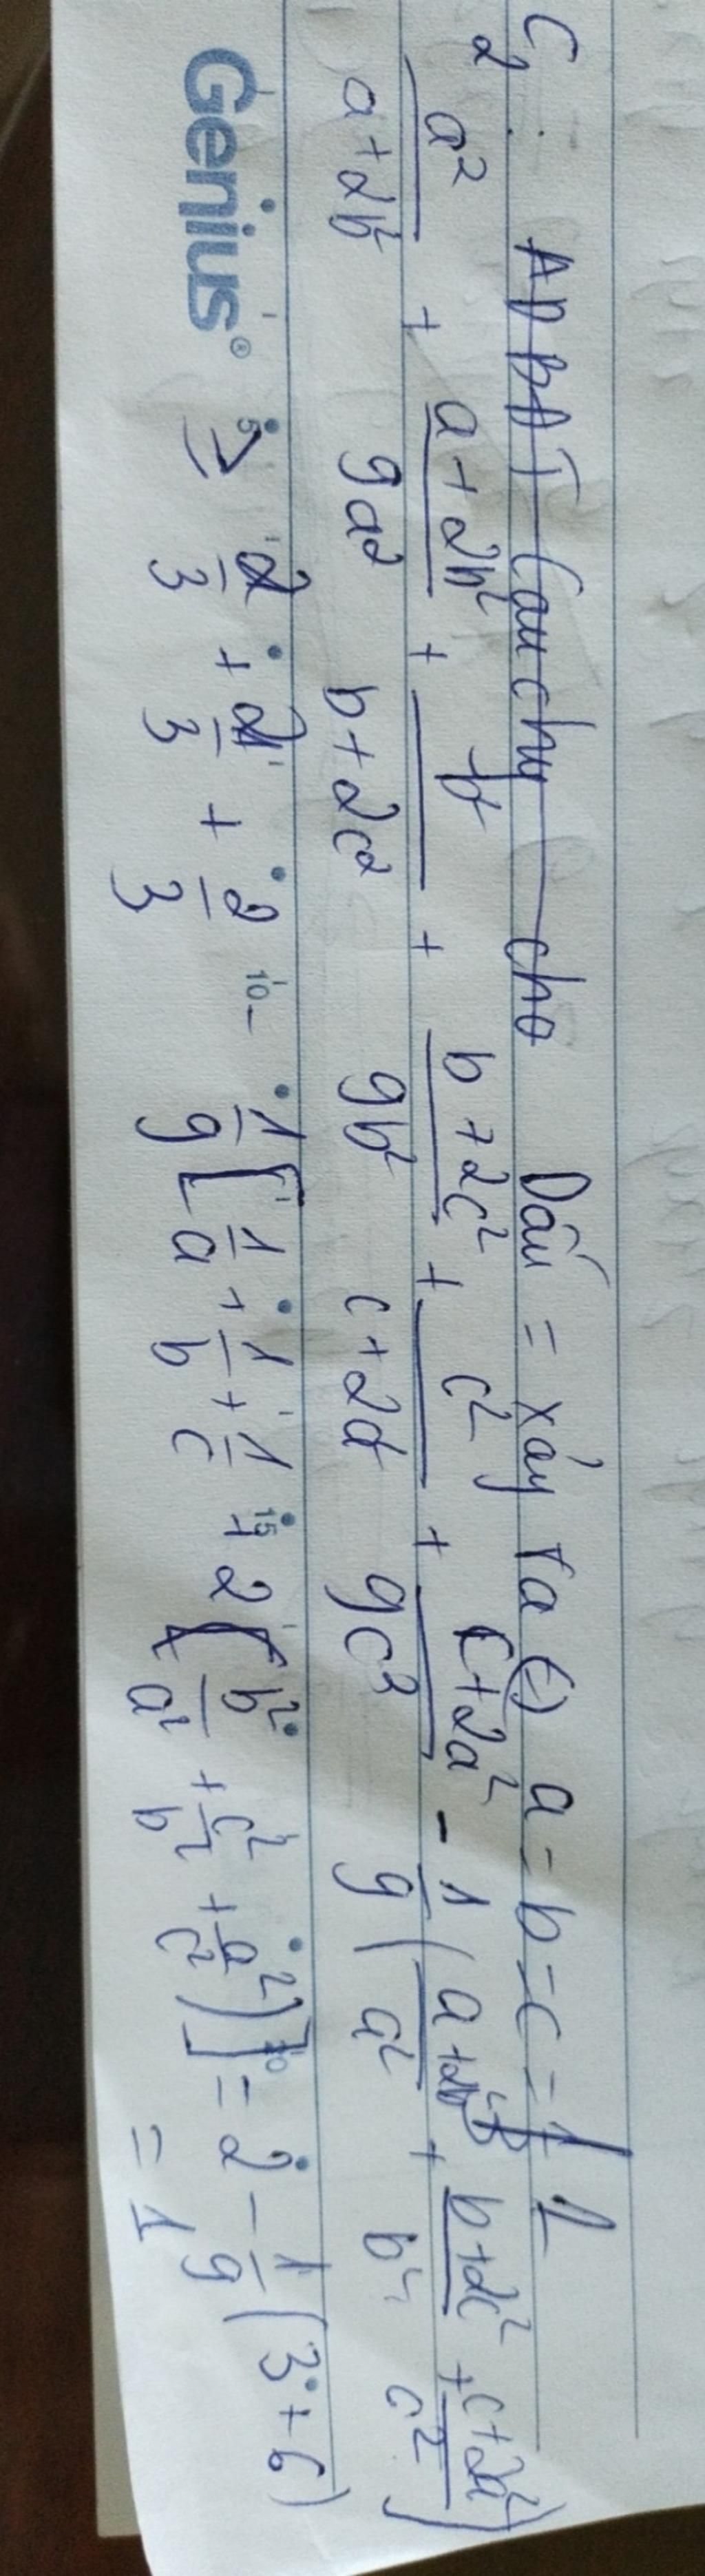 C2: ADBĐT Cauchy cho Dấu = xảy ra (=) a = b = c = 1 1
a²/(a+2b²) + (a+2b²)/9a² + b²/(b+2c²) + (b+2c²)/9b² + c²/(c+2a²) + (c+2a²)/9c² - 1/9 ( (a+2b²)/a² + (b+2c²)/b² + (c+2a²)/c² )
≥ 2/3 + 2/3 + 2/3 - 1/9 [ 1/a + 1/b + 1/c + 2 ( b²/a² + c²/b² + a²/c² ) ] = 2 - 1/9 (3 + 6)
= 1
Genius® 5 10 15 20